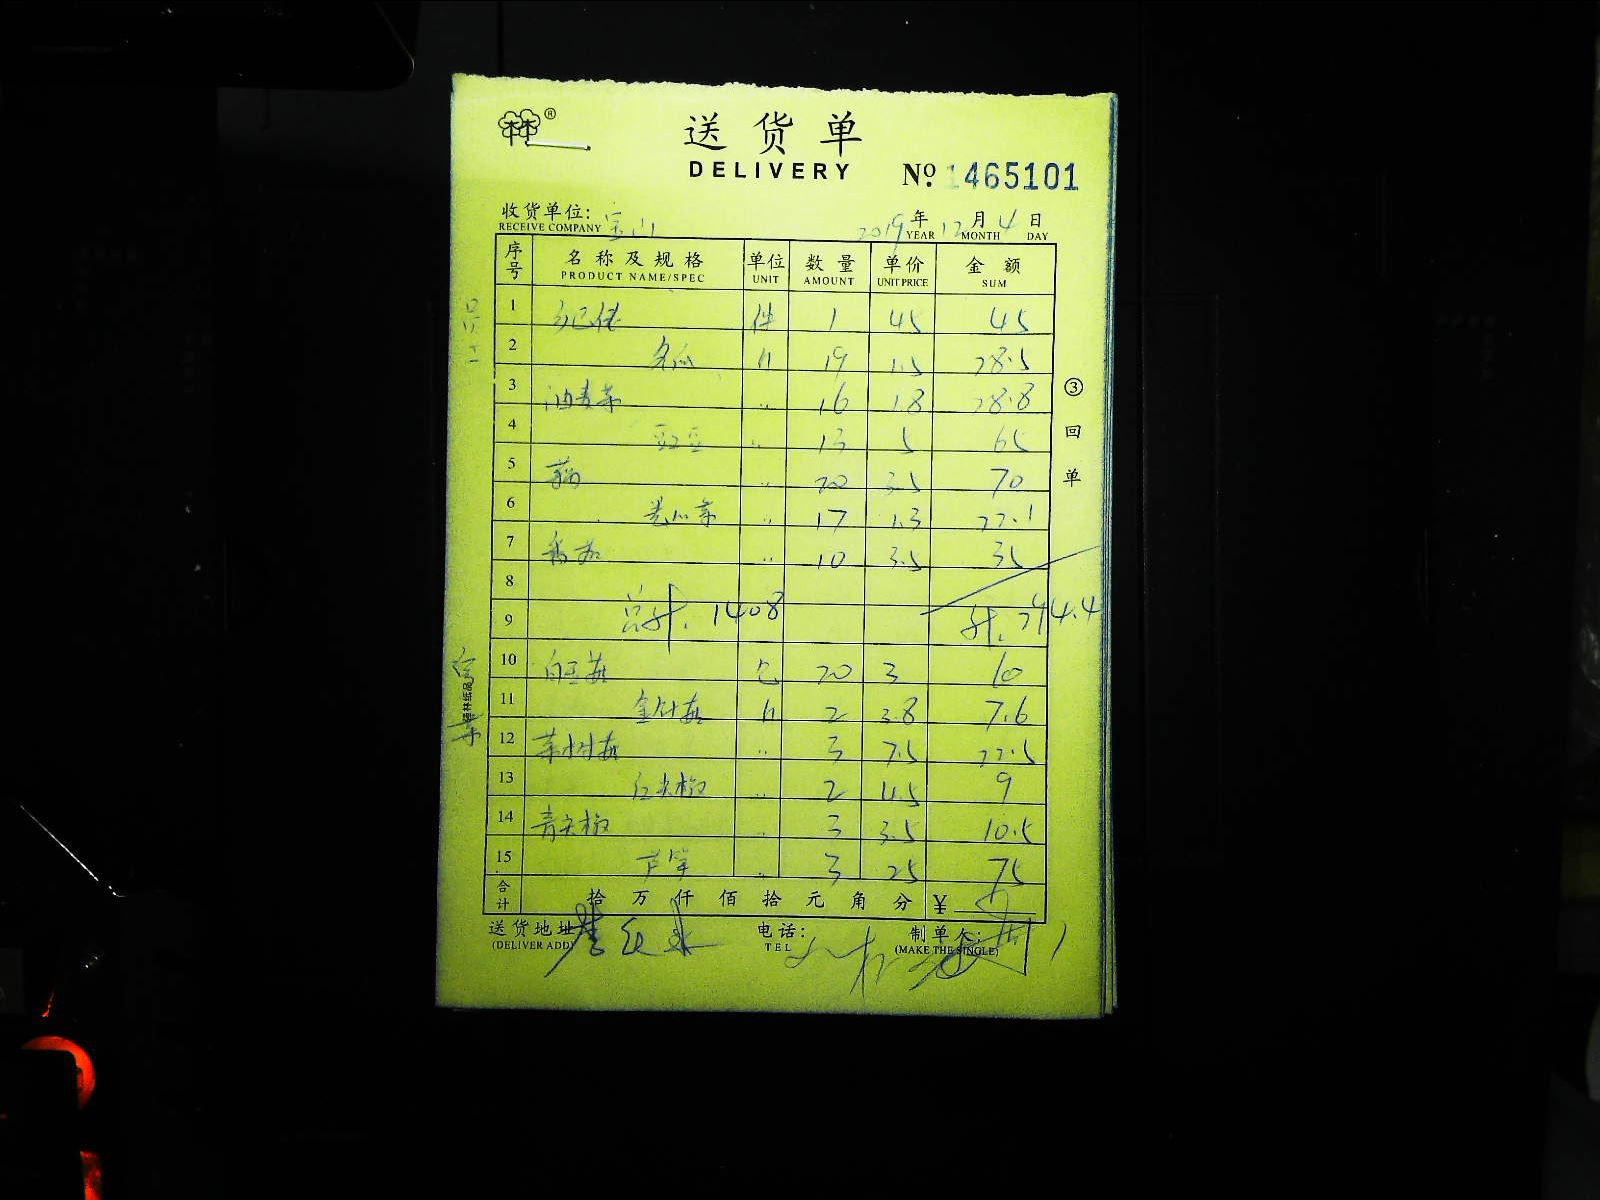 林®
送货单
DELIVERY
No. 1465101
收货单位: 宝山 2019年12月4日
RECEIVE COMPANY YEAR MONTH DAY
序号 名称及规格 单位 数量 单价 金额
PRODUCT NAME/SPEC UNIT AMOUNT UNIT PRICE SUM
1 乡巴佬 件 1 45 45
2 冬瓜 斤 19 1.5 28.5
3 油麦菜 〃 16 1.8 28.8
4 豇豆 〃 13 5 65
5 藕 〃 20 3.5 70
6 〃 17 1.3 22.1
7 〃 10 3.5 35
8
9 总计. 1408 计. 294.4
10 白玉菇 包 20 3 60
11 金针菇 斤 2 3.8 7.6
12 茶树菇 〃 3 7.5 22.5
13 红尖椒 〃 2 4.5 9
14 青尖椒 〃 3 3.5 10.5
15 芦笋 〃 3 25 75
合计 拾万仟佰拾元角分 ¥
送货地址 电话: 制单人:
(DELIVER ADD) TEL (MAKE THE SINGLE)
③回单